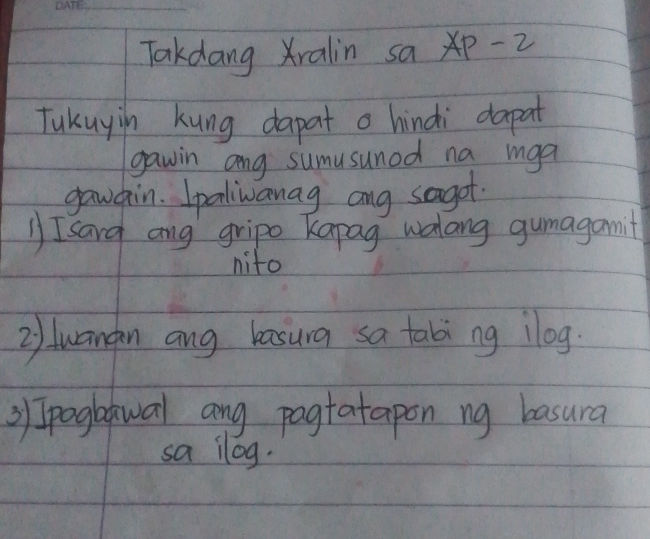 DATE:
Takdang Aralin sa AP-2
Tukuyin kung dapat o hindi dapat
gawin ang sumusunod na mga
gawain. Ipaliwanag ang sagot.
1) Isara ang gripo kapag walang gumagamit
nito
2) Iwanan ang basura sa tabi ng ilog.
3) Ipagbawal ang pagtatapon ng basura
sa ilog.